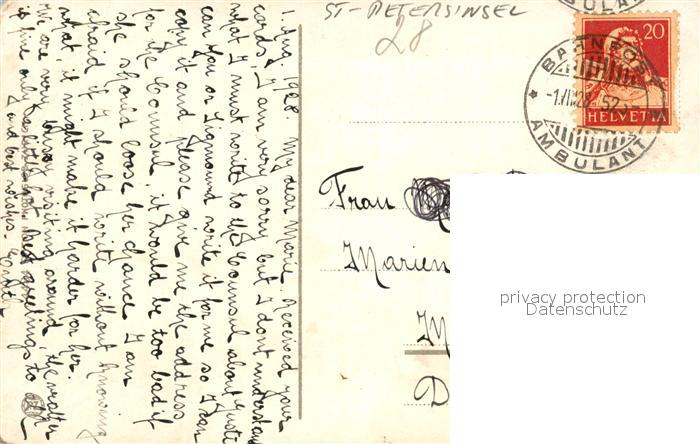 ST-PETERSINSEL
28
AMBULAN
20
HELVETIA
BAHNPOST
-1.VIII.28 - 52
AMBULANT
1. Aug. 1928. My dear Marie. Received your
cards, I am very sorry but I dont understand
what I must write to the Counsul about Guste
can you or Sigmound write it for me so I can
copy it and please give me the address
for the Counsul, it would be too bad if
she should loose her chance I am
afraid if I should write without knowing
what, it might make it harder for her.
We are very bussy visiting around, the weather
is fine only a little hot best greetings to all
and best wishes.
Frau
Marien
M
D
privacy protection
Datenschutz